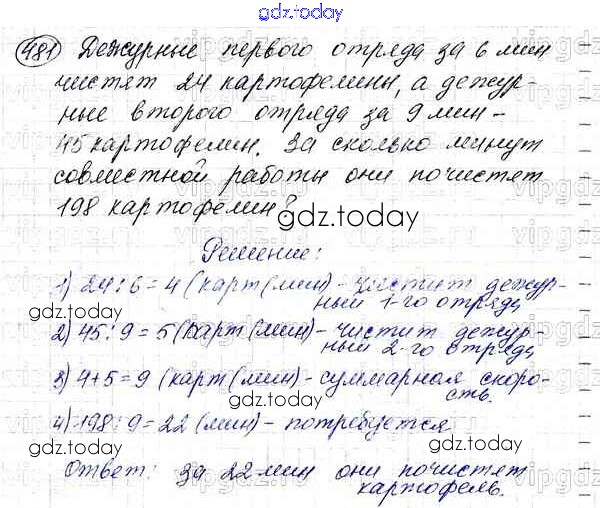 gdz.today
481 Дежурные первого отряда за 6 мин
чистят 24 картофелины, а дежур-
ные второго отряда за 9 мин -
45 картофелин. За сколько минут
совместной работы они почистят
198 картофелин?
gdz.today
Решение:
1) 24:6=4 (карт/мин) - чистит дежур-
ный 1-го отряда
gdz.today
2) 45:9=5 (карт/мин) - чистит дежур-
ный 2-го отряда
gdz.today
3) 4+5=9 (карт/мин) - суммарная скоро-
сть.
gdz.today
4) 198:9=22 (мин) - потребуется
gdz.today
Ответ: за 22 мин они почистят
картофель.
gdz.today